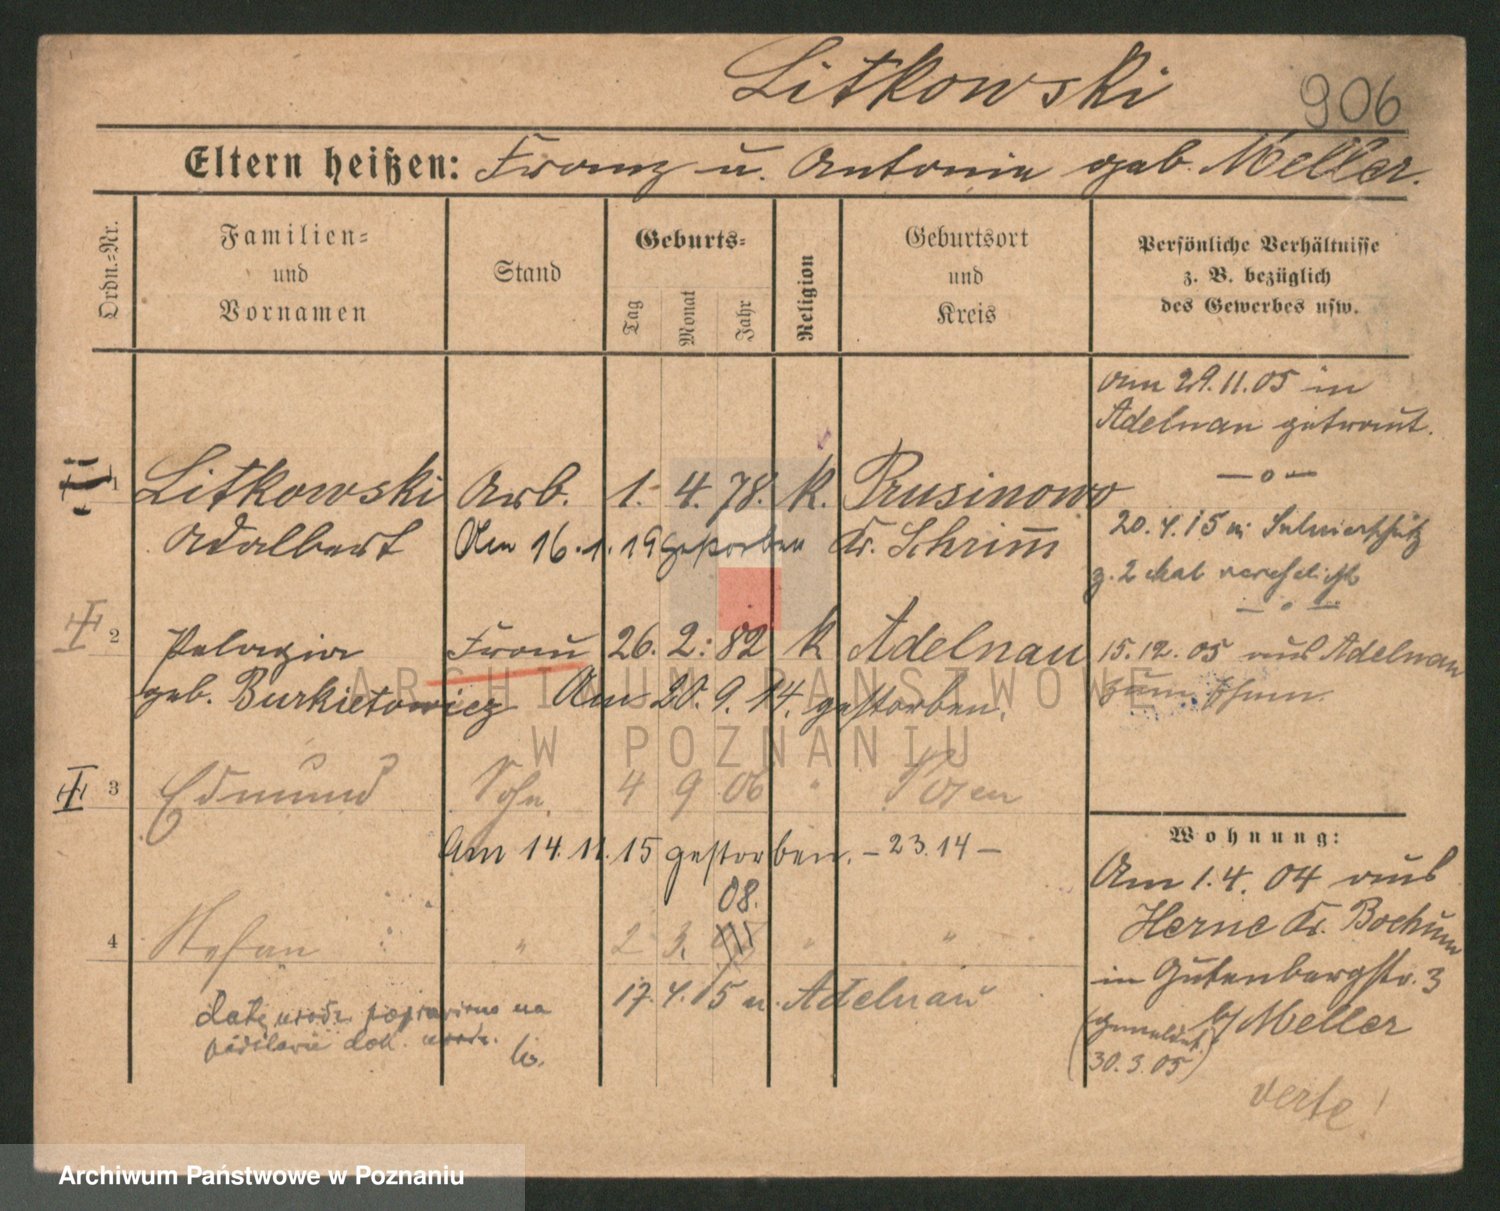 Litkowski
906
Eltern heißen: Franz u. Antonia geb. Meller.
Ordn.-Nr.
Familien- und Vornamen
Stand
Geburts-
Tag
Monat
Jahr
Religion
Geburtsort und Kreis
Persönliche Verhältnisse
z. B. bezüglich
des Gewerbes usw.
am 29.11.05 in
Adelnau getraut.
1 Litkowski Arb. 1. 4. 78. k. Prusinowo
Adalbert Am 16.1.19 gestorben Kr. Schrimm
20.4.15 in
z. 2 Mal verehelicht
2 Pelagia Frau 26. 2. 82 k Adelnau
geb. Burkietowicz Am 20.9.14. gestorben.
15.12.05 aus Adelnau
zum
3 Edmund Sohn 4 9 06 " Posen
Am 14.11.15 gestorben. - 23.14 -
08.
4 Stefan " 2 3. " "
17.4.15 n. Adelnau
datę urodz. poprawiono na
podstawie dok. urodz.
Wohnung:
Am 1.4.04 aus
Herne Kr. Bochum
in Gutenbergstr. 3
b/ Meller
(gemeldet
30.3.05)
verte!
ARCHIWUM PAŃSTWOWE
W POZNANIU
Archiwum Państwowe w Poznaniu